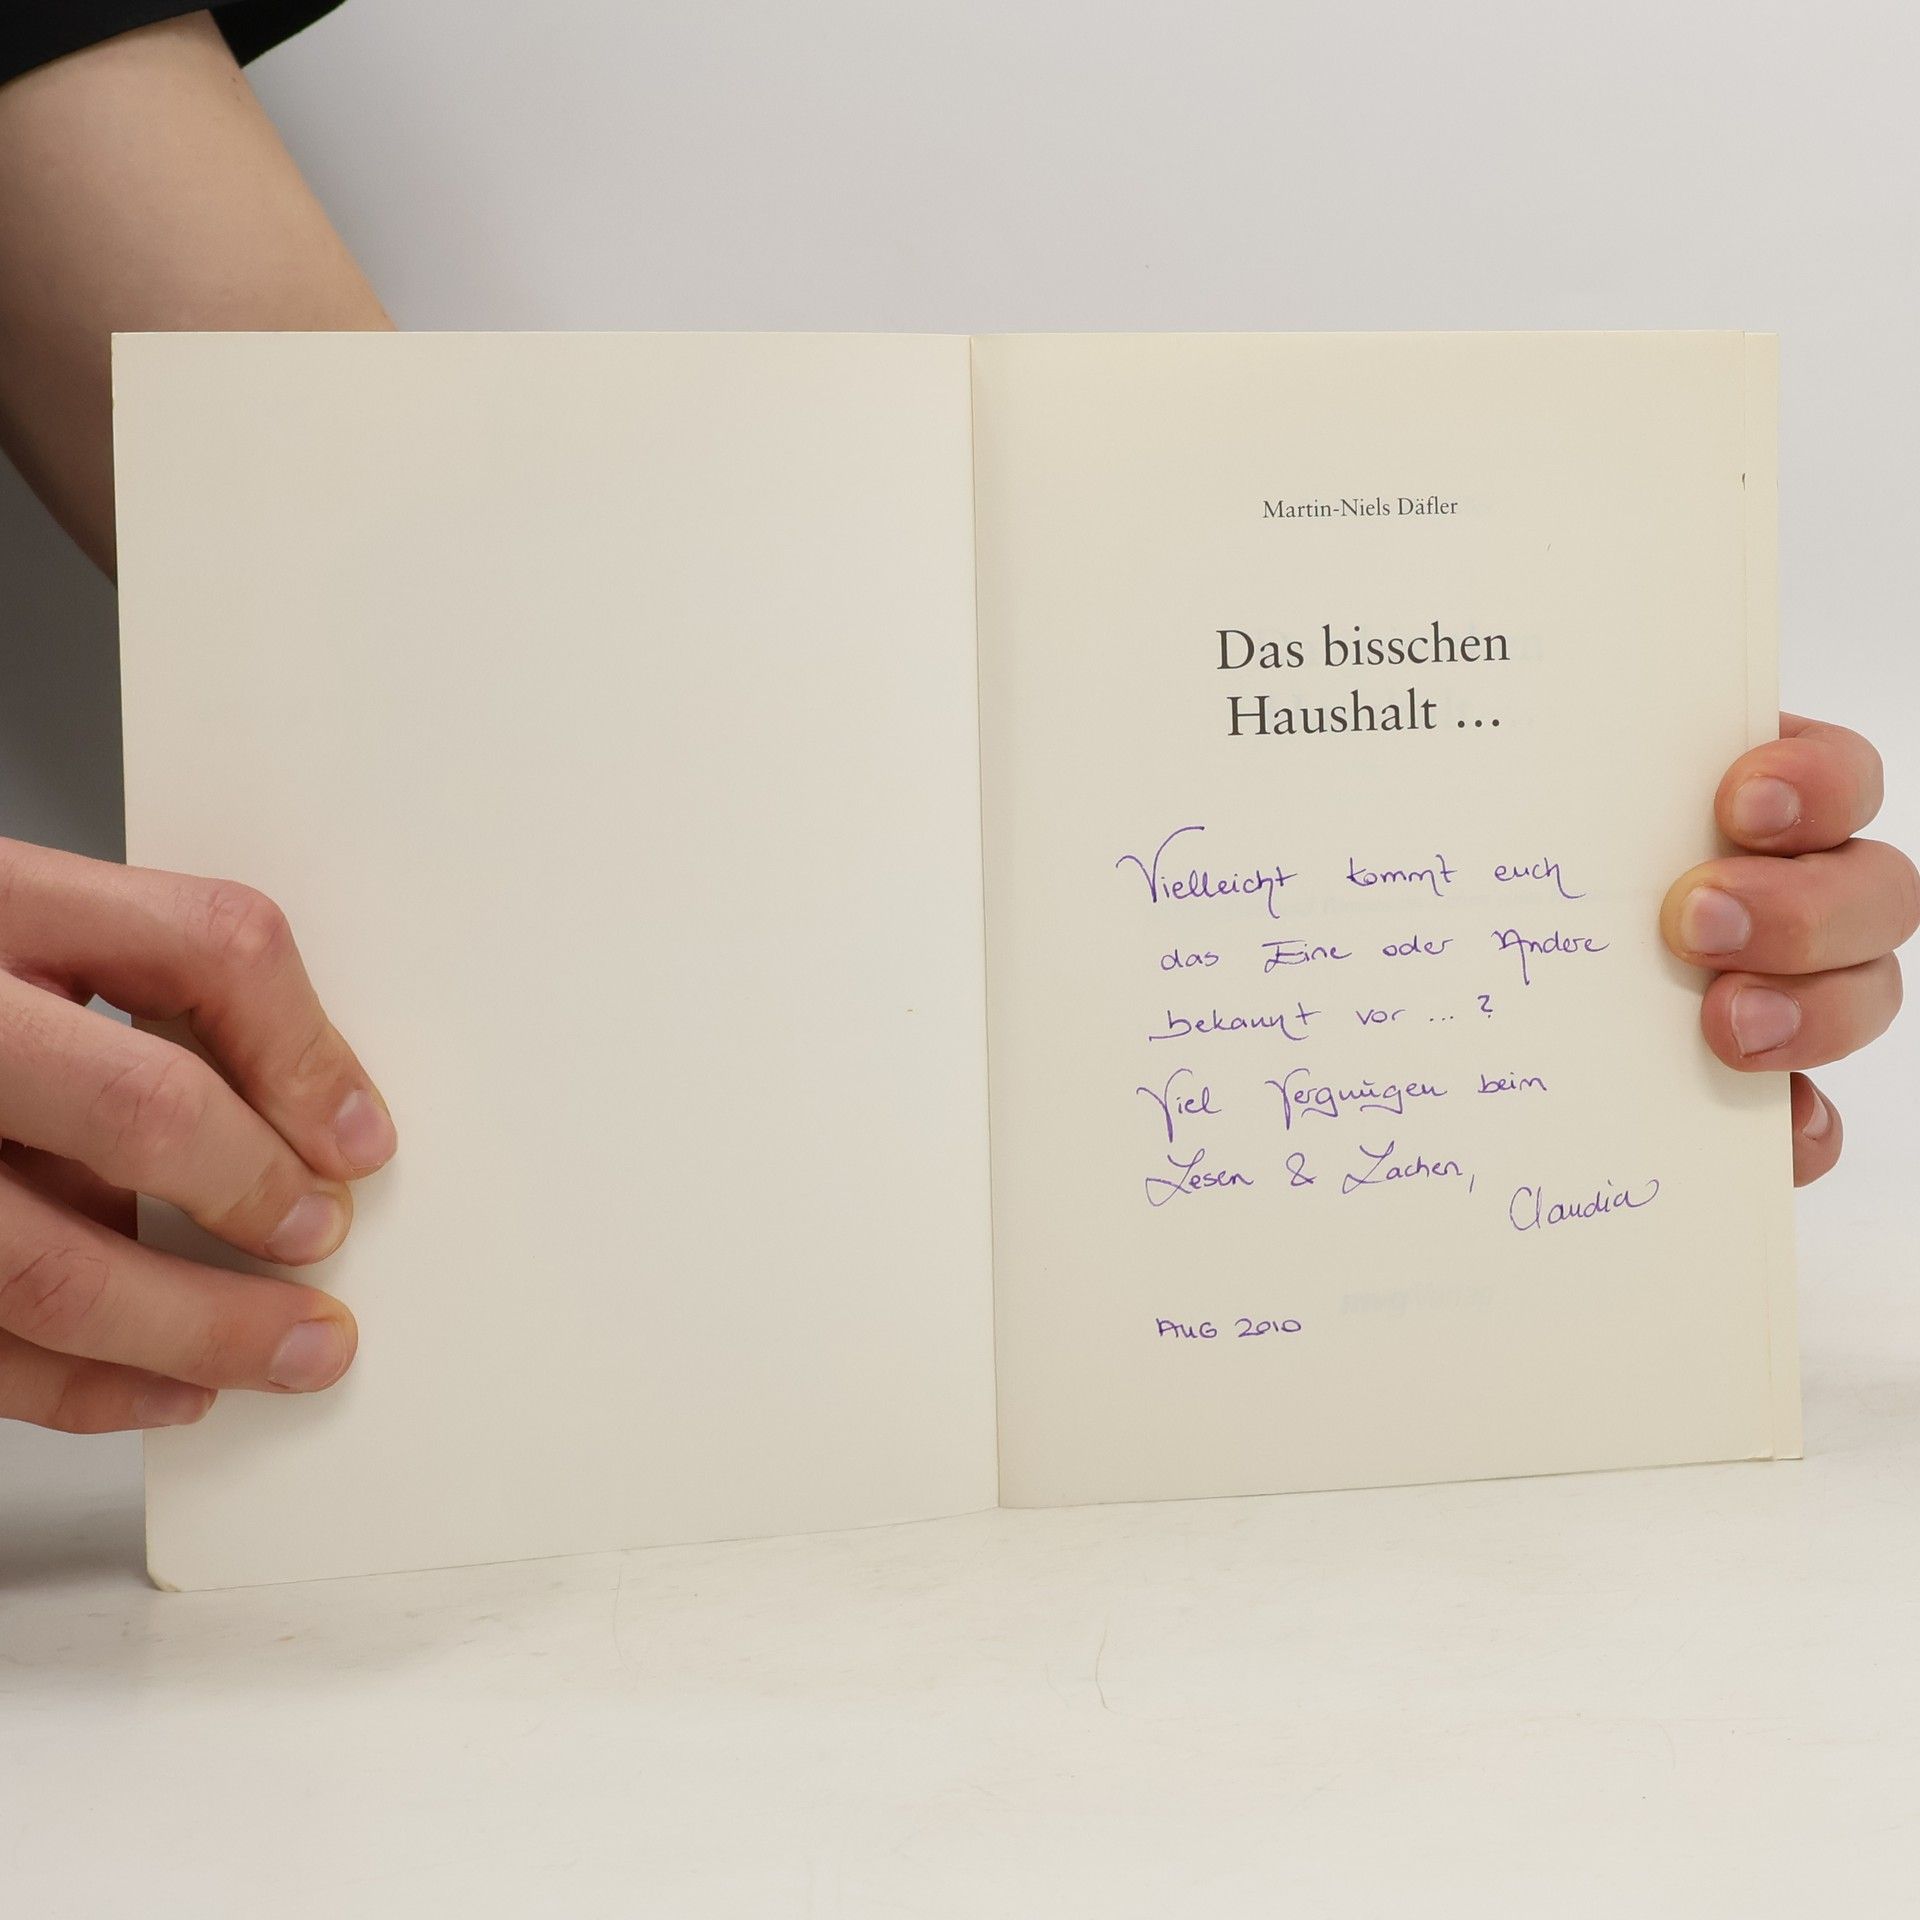 Martin-Niels Däfler
Das bisschen
Haushalt ...
Vielleicht kommt euch
das Eine oder Andere
bekannt vor ... ?
Viel Vergnügen beim
Lesen & Lachen,
Claudia
AUG 2010